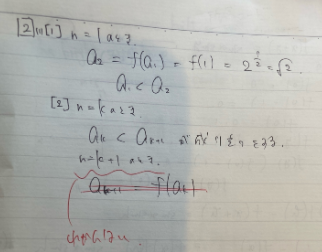 [2](1)[1] n=1のとき.
a₂ = f(a₁) = f(1) = 2^{1/2} = √2.
a₁ < a₂
[2] n=kのとき.
aₖ < aₖ₊₁ が成り立つとする.
n=k+1のとき.
aₖ₊₁ = f(aₖ)